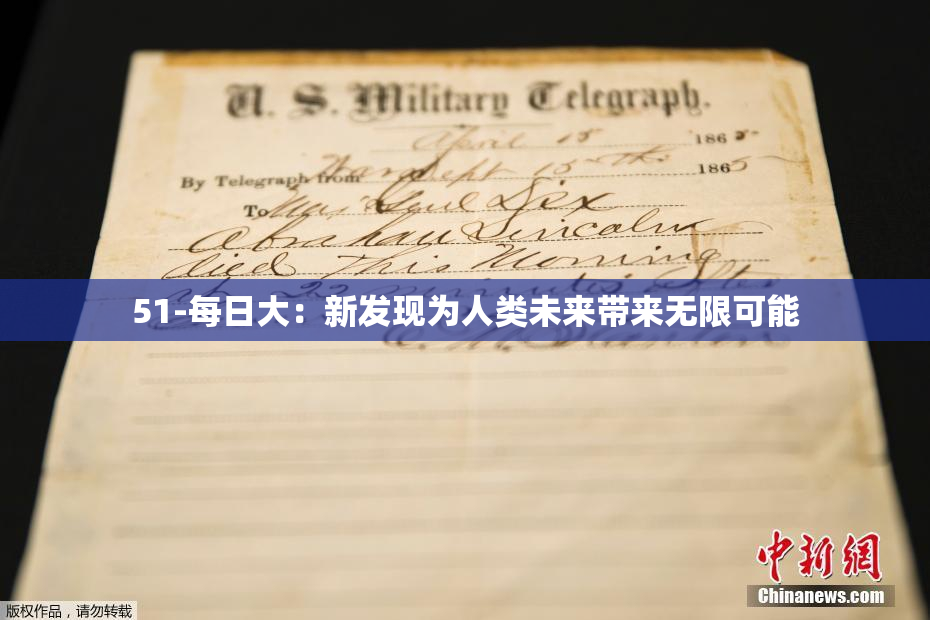 U. S. Military Telegraph.
April 15 1865
By Telegraph from War Dept 15th 1865
To Maj Genl Dix
Abraham Lincoln
died This Morning
22 minutes after
51-每日大：新发现为人类未来带来无限可能
中新網
Chinanews.com
版权作品，请勿转载